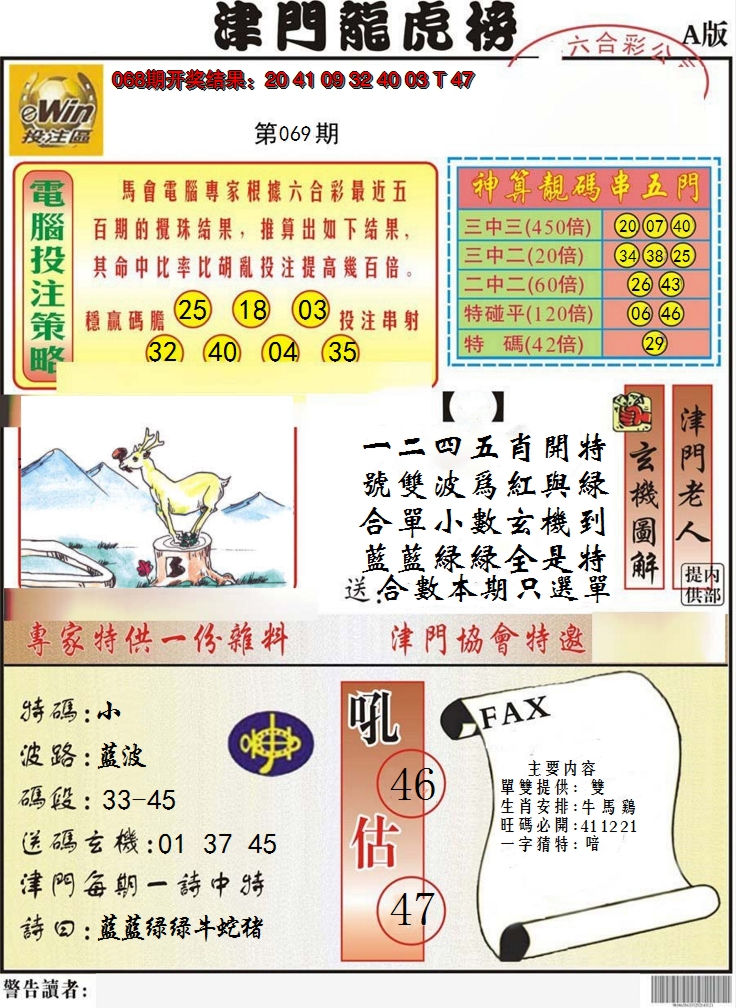 津門龍虎榜
A版
六合彩公
068期开奖结果：20 41 09 32 40 03 T 47
eWin
投注區
第069期
電腦投注策略
馬會電腦專家根據六合彩最近五
百期的攪珠结果，推算出如下结果，
其命中比率比胡亂投注提高幾百倍。
穩赢碼膽 25 18 03 投注串射
32 40 04 35
神算靚碼串五門
三中三(450倍) 20 07 40
三中二(20倍) 34 38 25
二中二(60倍) 26 43
特碰平(120倍) 06 46
特 碼(42倍) 29
【 】
一二四五肖開特
號雙波爲紅與綠
合單小數玄機到
藍藍綠綠全是特
送：合數本期只選單
玄機圖解
津門老人
内部提供
專家特供一份雜料
津門協會特邀
特碼：小
波路：藍波
碼段：33-45
送碼玄機：01 37 45
津門每期一詩中特
詩曰：藍藍绿绿牛蛇猪
吼
46
估
47
FAX
主要内容
單雙提供：雙
生肖安排：牛馬鷄
旺碼必開：411221
一字猜特：喑
警告讀者：